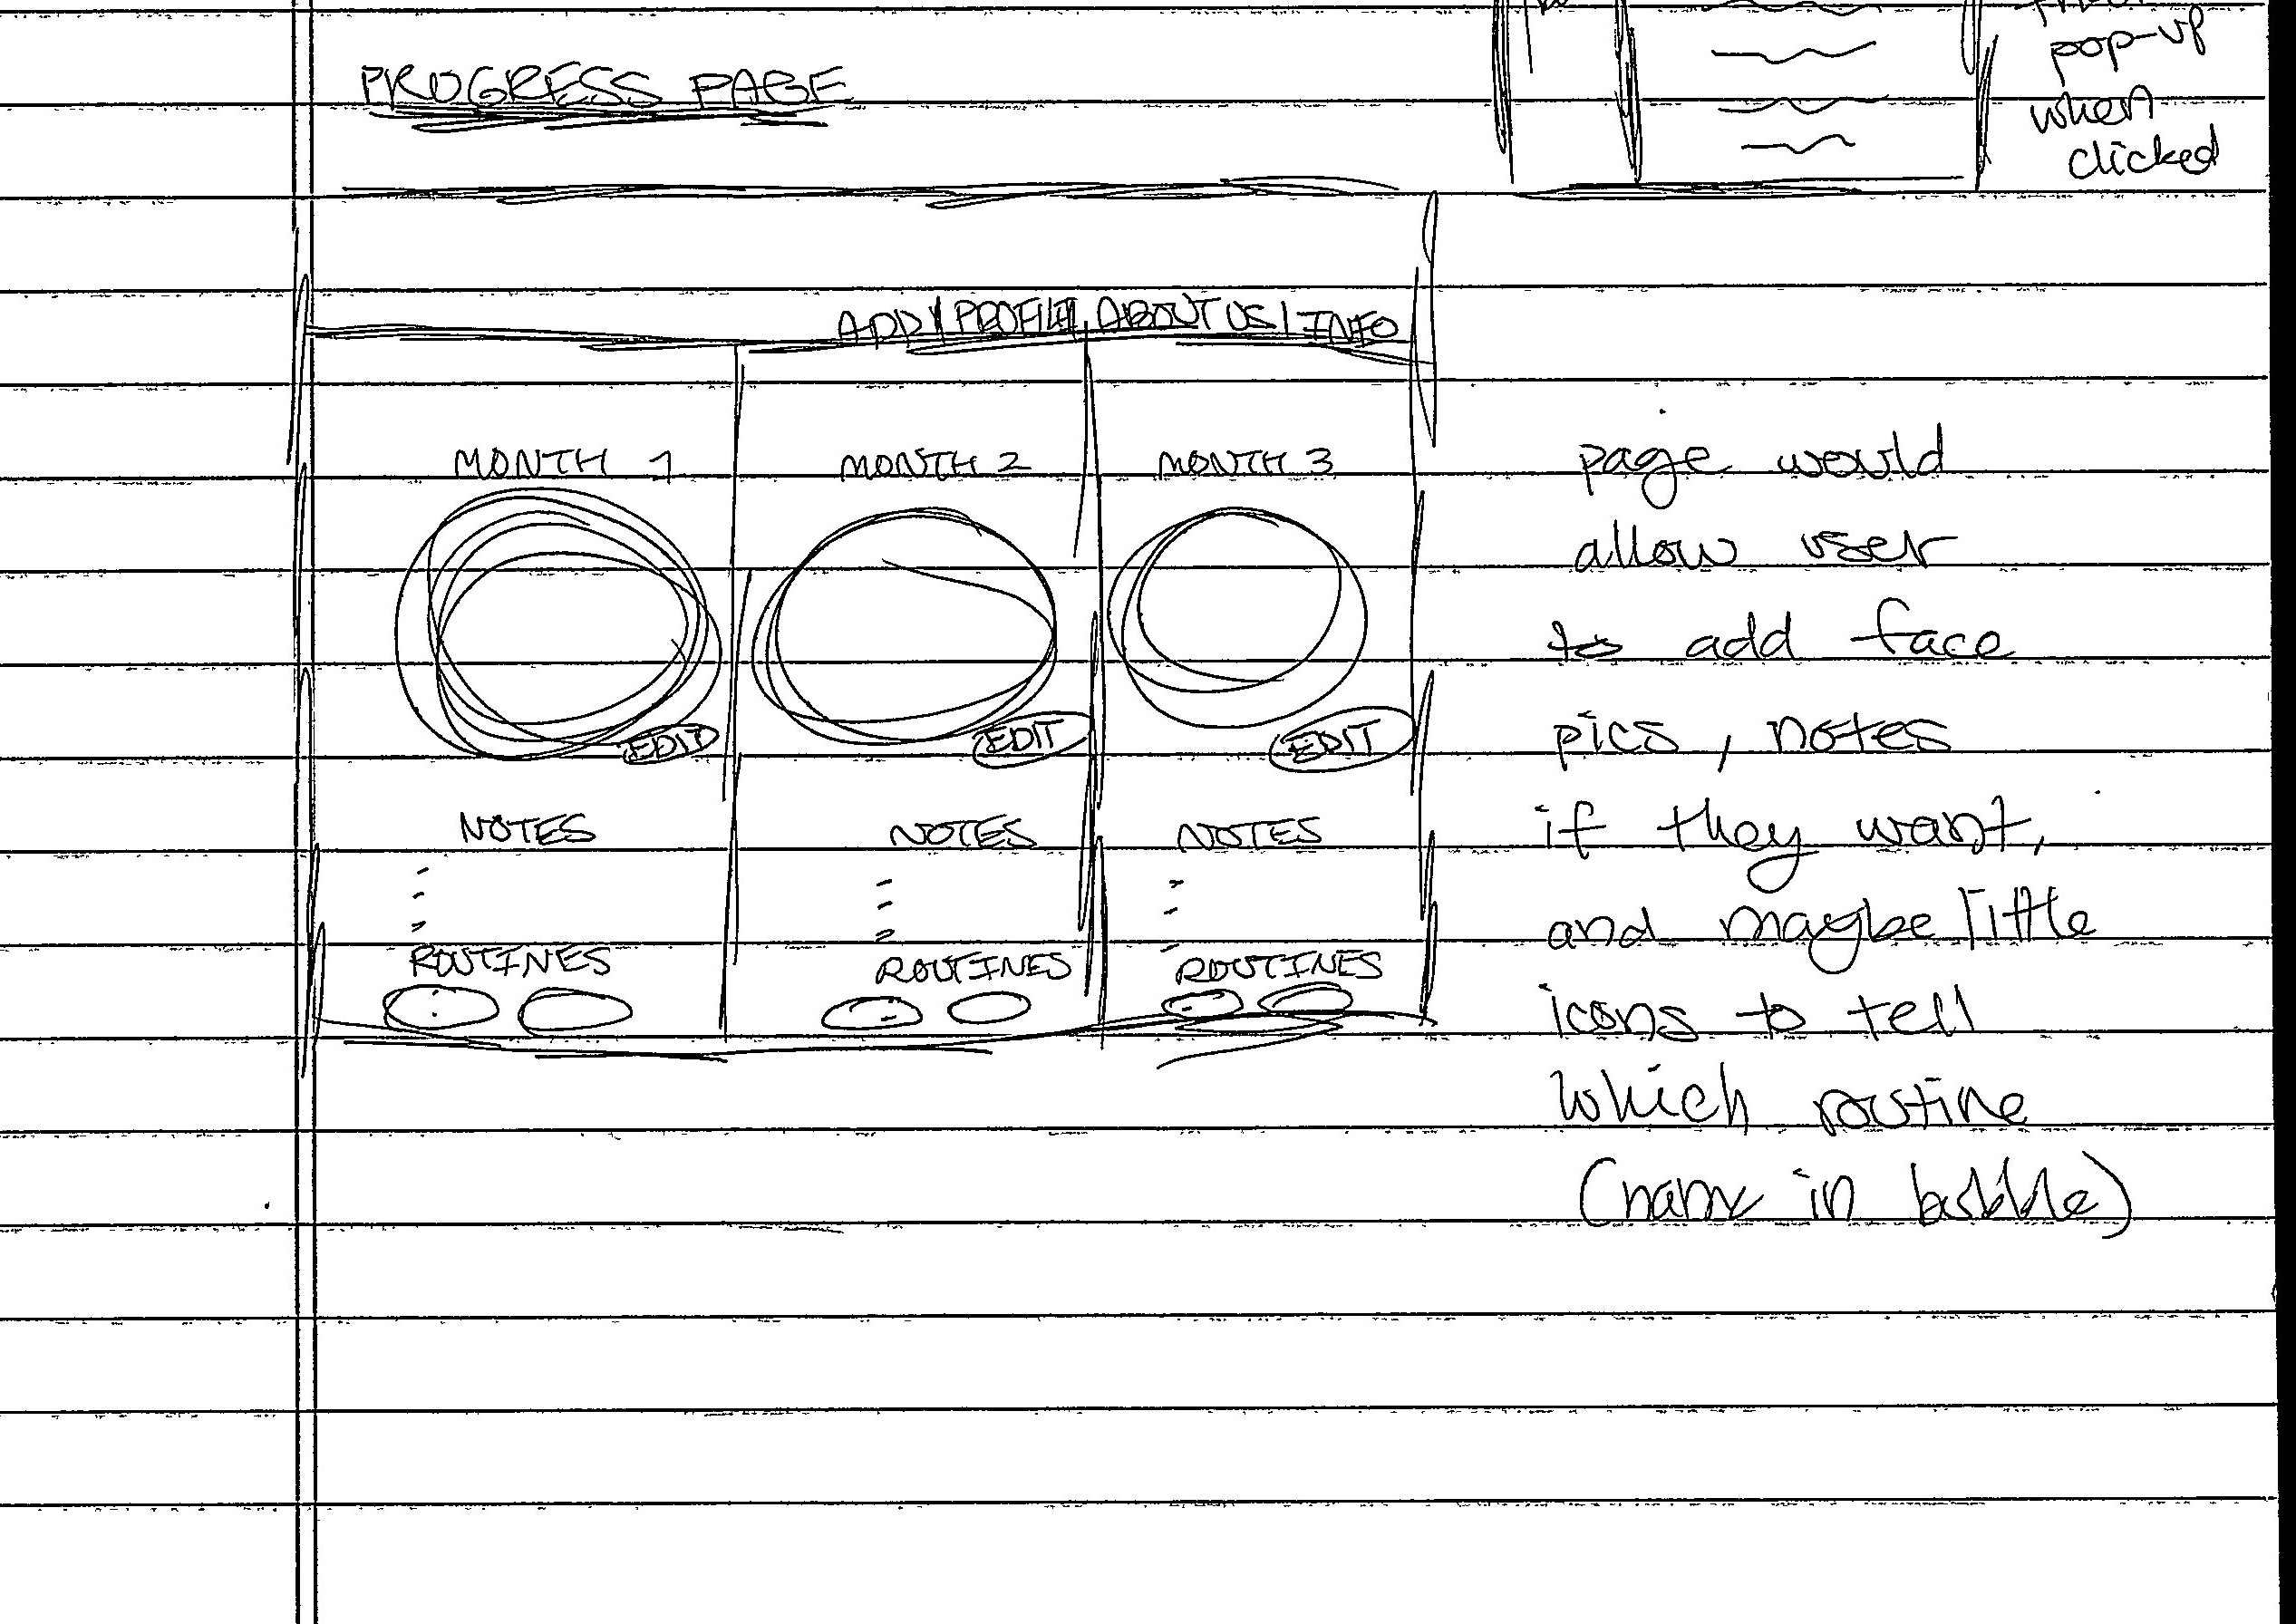 pop-up
when
clicked
PROGRESS PAGE
ADD | PROFILE | ABOUT US | INFO
MONTH 1 MONTH 2 MONTH 3
EDIT EDIT EDIT
NOTES NOTES NOTES
ROUTINES ROUTINES ROUTINES
page would
allow user
to add face
pics, notes
if they want,
and maybe little
icons to tell
which routine
(name in bubble)